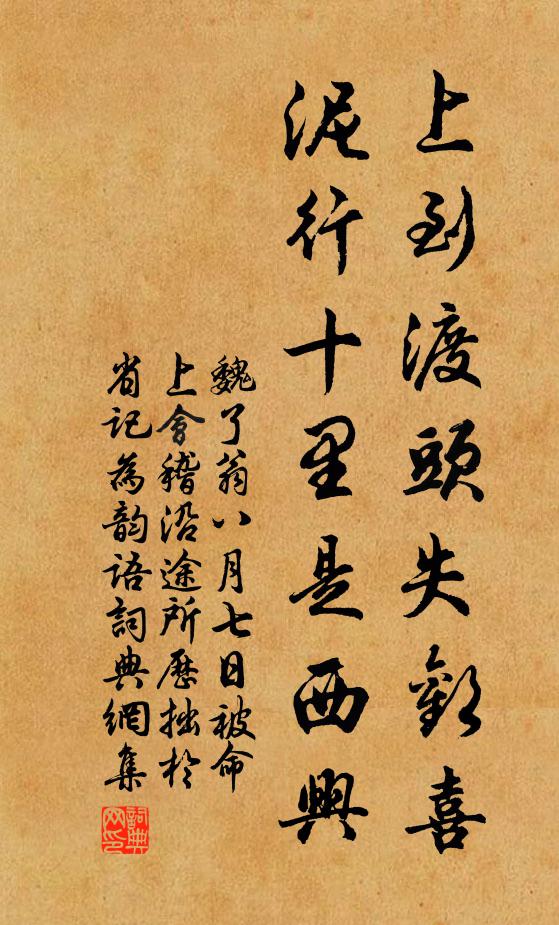 上到渡頭失歡喜
泥行十里是西興
魏了翁八月七日被命
上會稽沿途所歷拙於
省記為韵語詞典網集
詞典网印